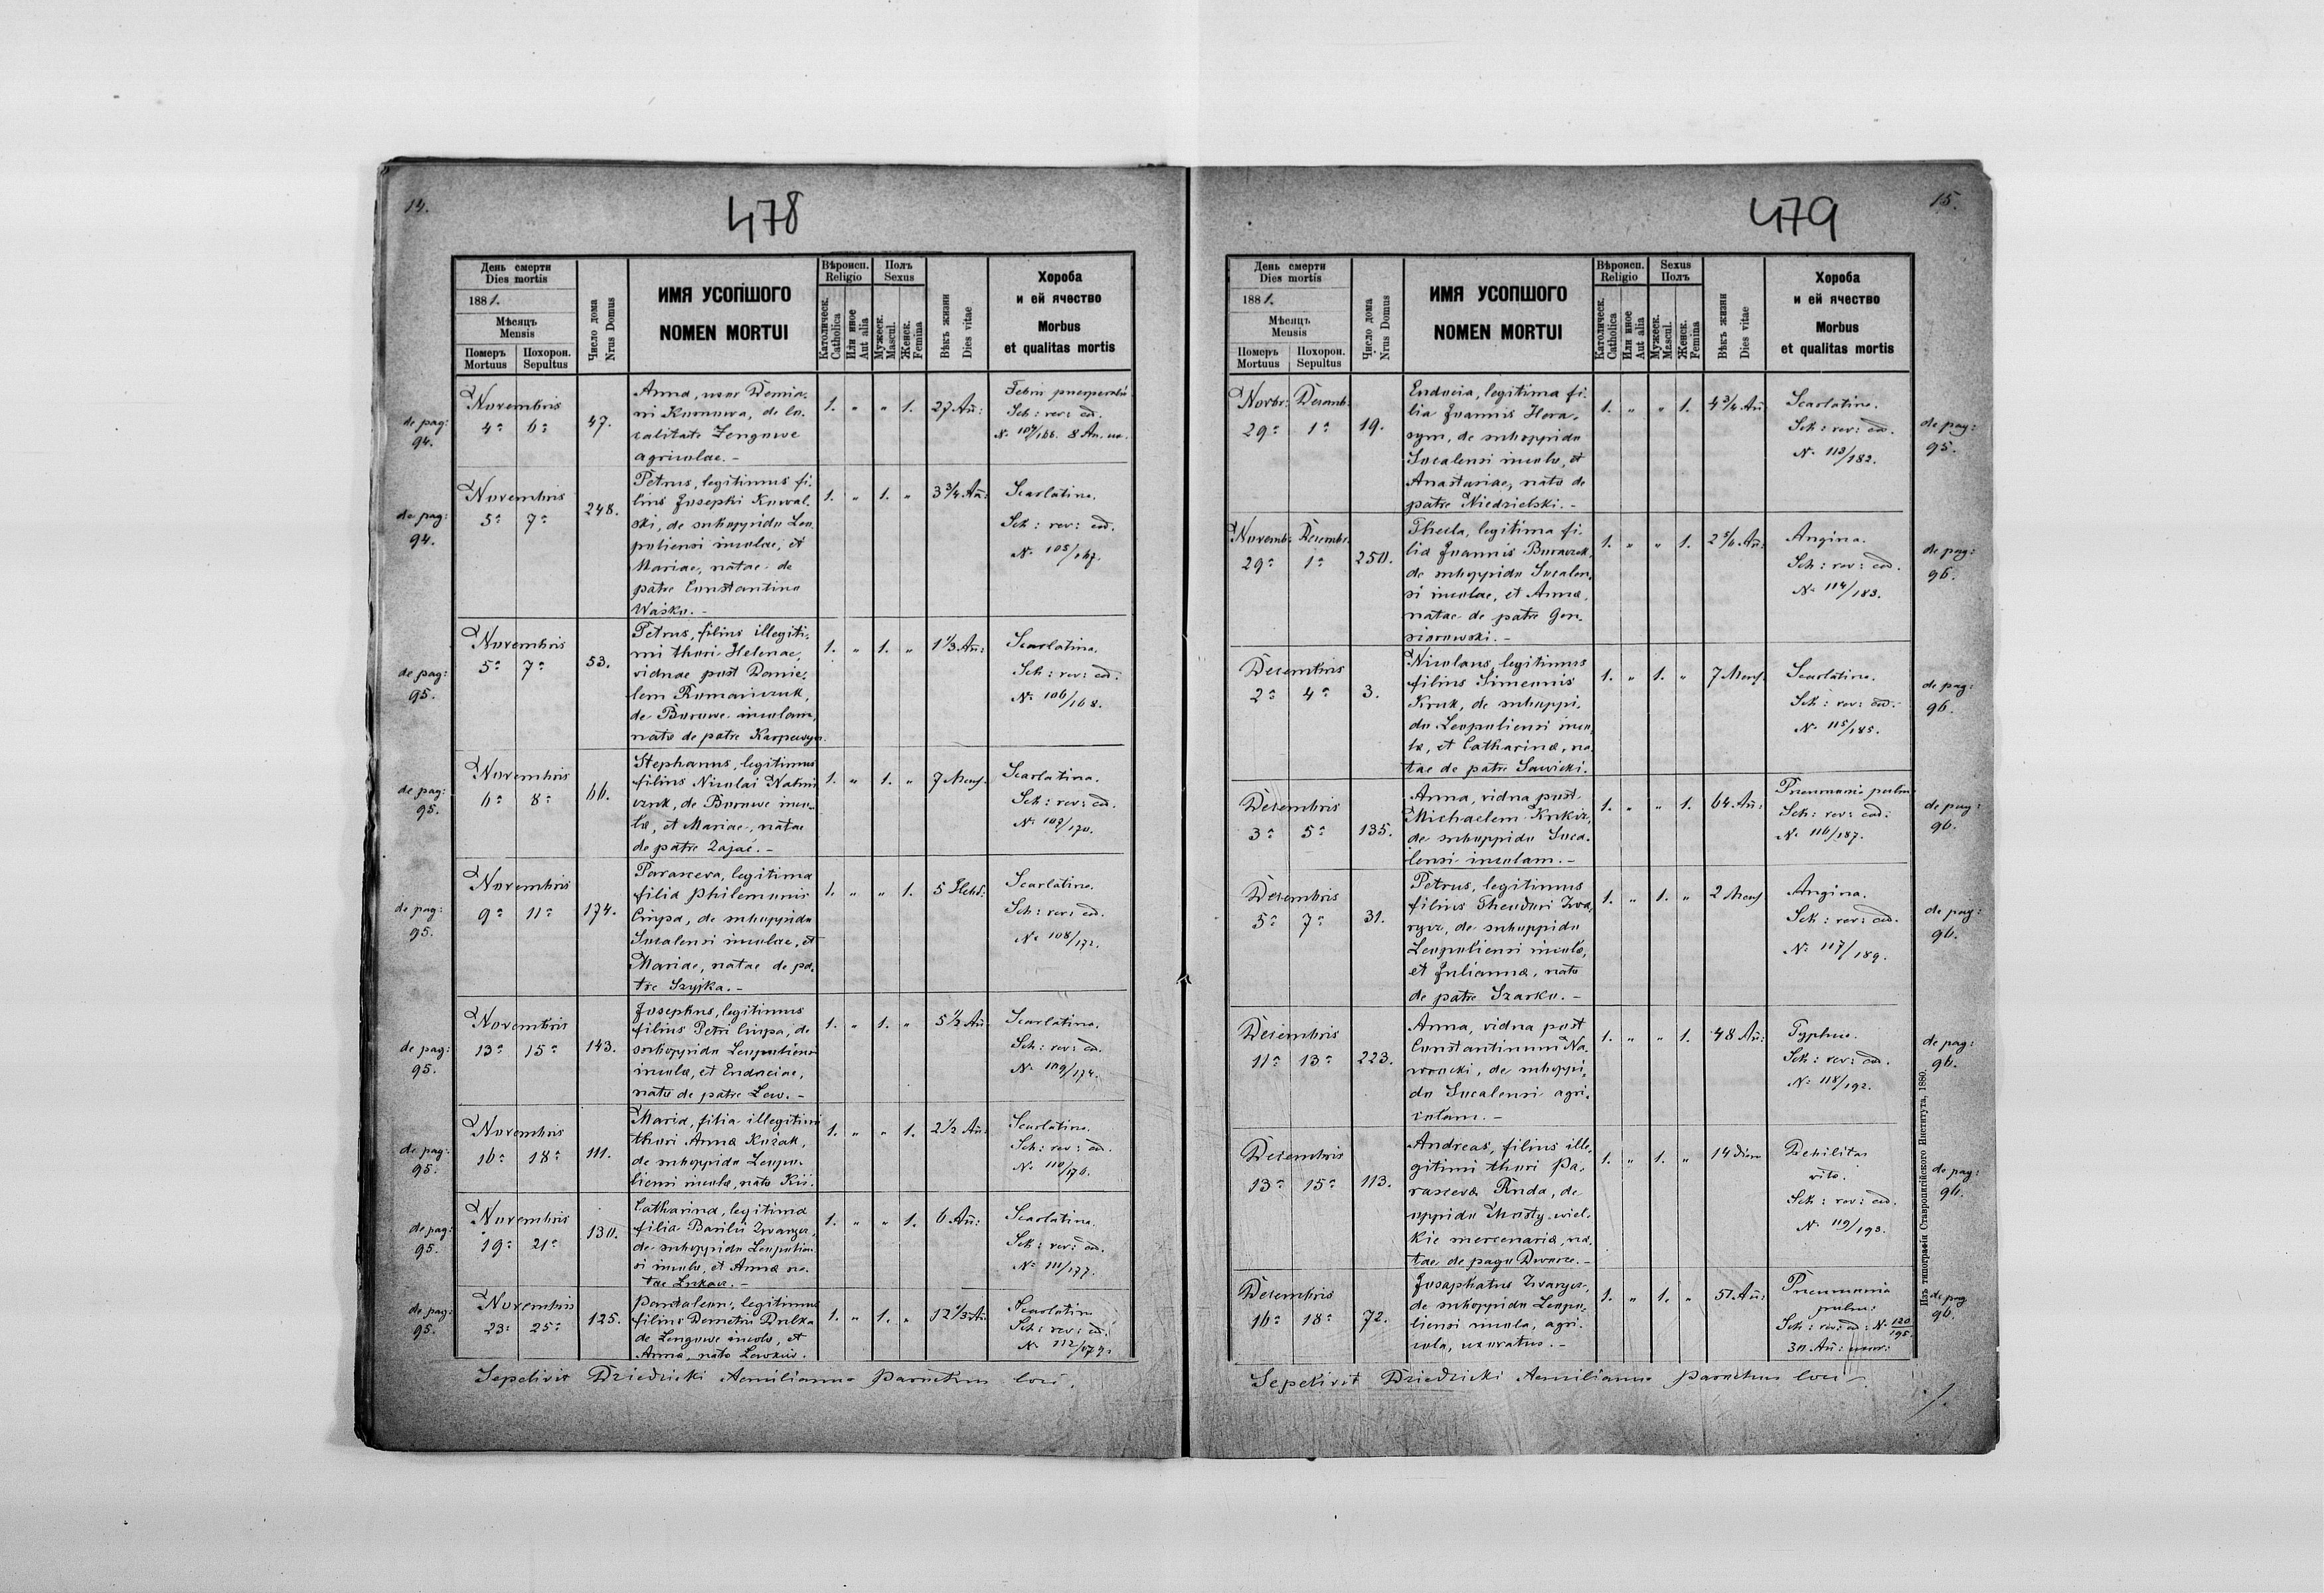 14.
478
День смерти
Dies mortis
1881.
Мѣсяцъ
Mensis
Померъ
Mortuus
Похорон.
Sepultus
Число дома
Nrus Domus
ИМЯ УСОПШОГО
NOMEN MORTUI
Вѣроисп.
Religio
Католическ.
Catholica
Или иное
Aut alia
Полъ
Sexus
Мужеск.
Mascul.
Женск.
Femina
Вѣкъ жизни
Dies vitae
Хороба
и ей ячество
Morbus
et qualitas mortis
de pag: 94.
Novembris
4a 6a
47.
Anna, uxor Demia-
ni Kononowa, de lo-
calitate Zengowe
agricolae. -
1. " " 1.
27 An:
Febris puerperalis
Sch: rev: ed.
No 104/166. 8 An. ux.
de pag: 94.
Novembris
5a 7a
248.
Petrus, legitimus fi-
lius Josephi Kowal-
ski, de suboppido Leo-
poliensi incolae, et
Mariae, natae de
patre Constantino
Waśko. -
1. " 1. "
3 3/4 An:
Scarlatina.
Sch: rev: ed.
No 105/167.
de pag: 95.
Novembris
5a 7a
53.
Petrus, filius illegiti-
mi thori Helenae,
viduae post Danie-
lem Romańczuk,
de Borowe incolam,
nata de patre Karpowycz.
1. " 1. "
1 1/3 An:
Scarlatina.
Sch: rev: ed.
No 106/168.
de pag: 95.
Novembris
6a 8a
66.
Stephanus, legitimus
filius Nicolai
czuk, de Borowe inco-
la, et Mariae, natae
de patre Zając. -
1. " 1. "
7 Mens.
Scarlatina.
Sch: rev: ed.
No 107/170.
de pag: 95.
Novembris
9a 11a
174.
Parasceva, legitima
filia Philemonis
Ciupa, de suboppido
Socalensi incolae, et
Mariae, natae de pa-
tre Szyjka. -
1. " " 1.
5 Hebd:
Scarlatina.
Sch: rev: ed.
No 108/172.
de pag: 95.
Novembris
13a 15a
143.
Josephus, legitimus
filius Petri Ciupa, de
suboppido Leopoliensi
incola, et Eudociae,
nata de patre Lew. -
1. " 1. "
5 1/2 An:
Scarlatina.
Sch: rev: ed.
No 109/174.
de pag: 95.
Novembris
16a 18a
111.
Maria, filia illegitimi
thori Anna Kozak,
de suboppido Leopo-
liensi incola, nata Kii.
1. " " 1.
2 1/2 An:
Scarlatina.
Sch: rev: ed.
No 110/176.
de pag: 95.
Novembris
19a 21a
130.
Catharina, legitima
filia Basilii Zwarycz,
de suboppido Leopolien-
si incola, et Anna na-
tae Lukacz. -
1. " " 1.
6 An:
Scarlatina.
Sch: rev: ed.
No 111/177.
de pag: 95.
Novembris
23a 25a
125.
Pantaleon, legitimus
filius Demetrii Dulka
de Zengowe incola, et
Anna, nata Lewkow.
1. " 1. "
12 1/3 An:
Scarlatina
Sch: rev: ed.
No 112/179.
Sepelivit Dziedzicki Aemilianus Parochus loci.
15.
479
День смерти
Dies mortis
1881.
Мѣсяцъ
Mensis
Померъ
Mortuus
Похорон.
Sepultus
Число дома
Nrus Domus
ИМЯ УСОПШОГО
NOMEN MORTUI
Вѣроисп.
Religio
Католическ.
Catholica
Или иное
Aut alia
Sexus
Полъ
Мужеск.
Mascul.
Женск.
Femina
Вѣкъ жизни
Dies vitae
Хороба
и ей ячество
Morbus
et qualitas mortis
Novbr: Decemb.
29a 1a
19.
Eudocia, legitima fi-
lia Joannis Hera-
sym, de suboppido
Socalensi incola, et
Anastasiae, nata de
patre Niedzielski. -
1. " " 1.
4 3/4 An
Scarlatina.
Sch: rev: ed.
No 113/182.
de pag: 95.
Novemb: Decembr.
29a 1a
250.
Thecla, legitima fi-
lia Joannis Buraczok,
de suboppido Socalen-
si incolae, et Anna,
natae de patre Gon-
siorowski. -
1. " " 1.
2 5/6 An:
Angina.
Sch: rev: ed.
No 114/183.
de pag: 96.
Decembris
2a 4a
3.
Nicolaus, legitimus
filius Simeonis
Kruk, de suboppi-
do Leopoliensi inco-
la, et Catharina, na-
tae de patre Sawicki.
1. " 1. "
7 Mens.
Scarlatina.
Sch: rev: ed.
No 115/185.
de pag: 96.
Decembris
3a 5a
135.
Anna, vidua post
Michaelem Kukiz,
de suboppido Soca-
lensi incolam. -
1. " " 1.
64 An:
Pneumonia pulm:
Sch: rev: ed:
No 116/187.
de pag: 96.
Decembris
5a 7a
31.
Petrus, legitimus
filius Theodori Zwa-
rycz, de suboppido
Leopoliensi incola,
et Julianna, nata
de patre Szarko. -
1. " 1. "
2 Mens
Angina.
Sch: rev: ed.
No 117/189.
de pag: 96.
Decembris
11a 13a
223.
Anna, vidua post
Constantinum Na-
wrocki, de suboppi-
do Socalensi agri-
colam. -
1. " " 1.
48 An:
Typhus.
Sch: rev: ed.
No 118/192.
de pag: 96.
Decembris
13a 15a
113.
Andreas, filius ille-
gitimi thori Pa-
rasceva Ruda, de
oppido Mosty wiel-
kie mercenaria, na-
tae de pago Dworce. -
1. " 1. "
14 Dier
Debilitas
vitae.
Sch: rev: ed.
No 119/193.
de pag: 96.
Decembris
16a 18a
72.
Josaphatus Zwarycz,
de suboppido Leopo-
liensi incola, agri-
cola, uxoratus. -
1. " 1. "
51 An:
Pneumonia
pulm:
Sch: rev: ed: No 120/195.
30 An: uxor:
de pag 96.
Изъ типографіи Ставропигійского Института, 1880.
Sepelivit Dziedzicki Aemilianus Parochus loci